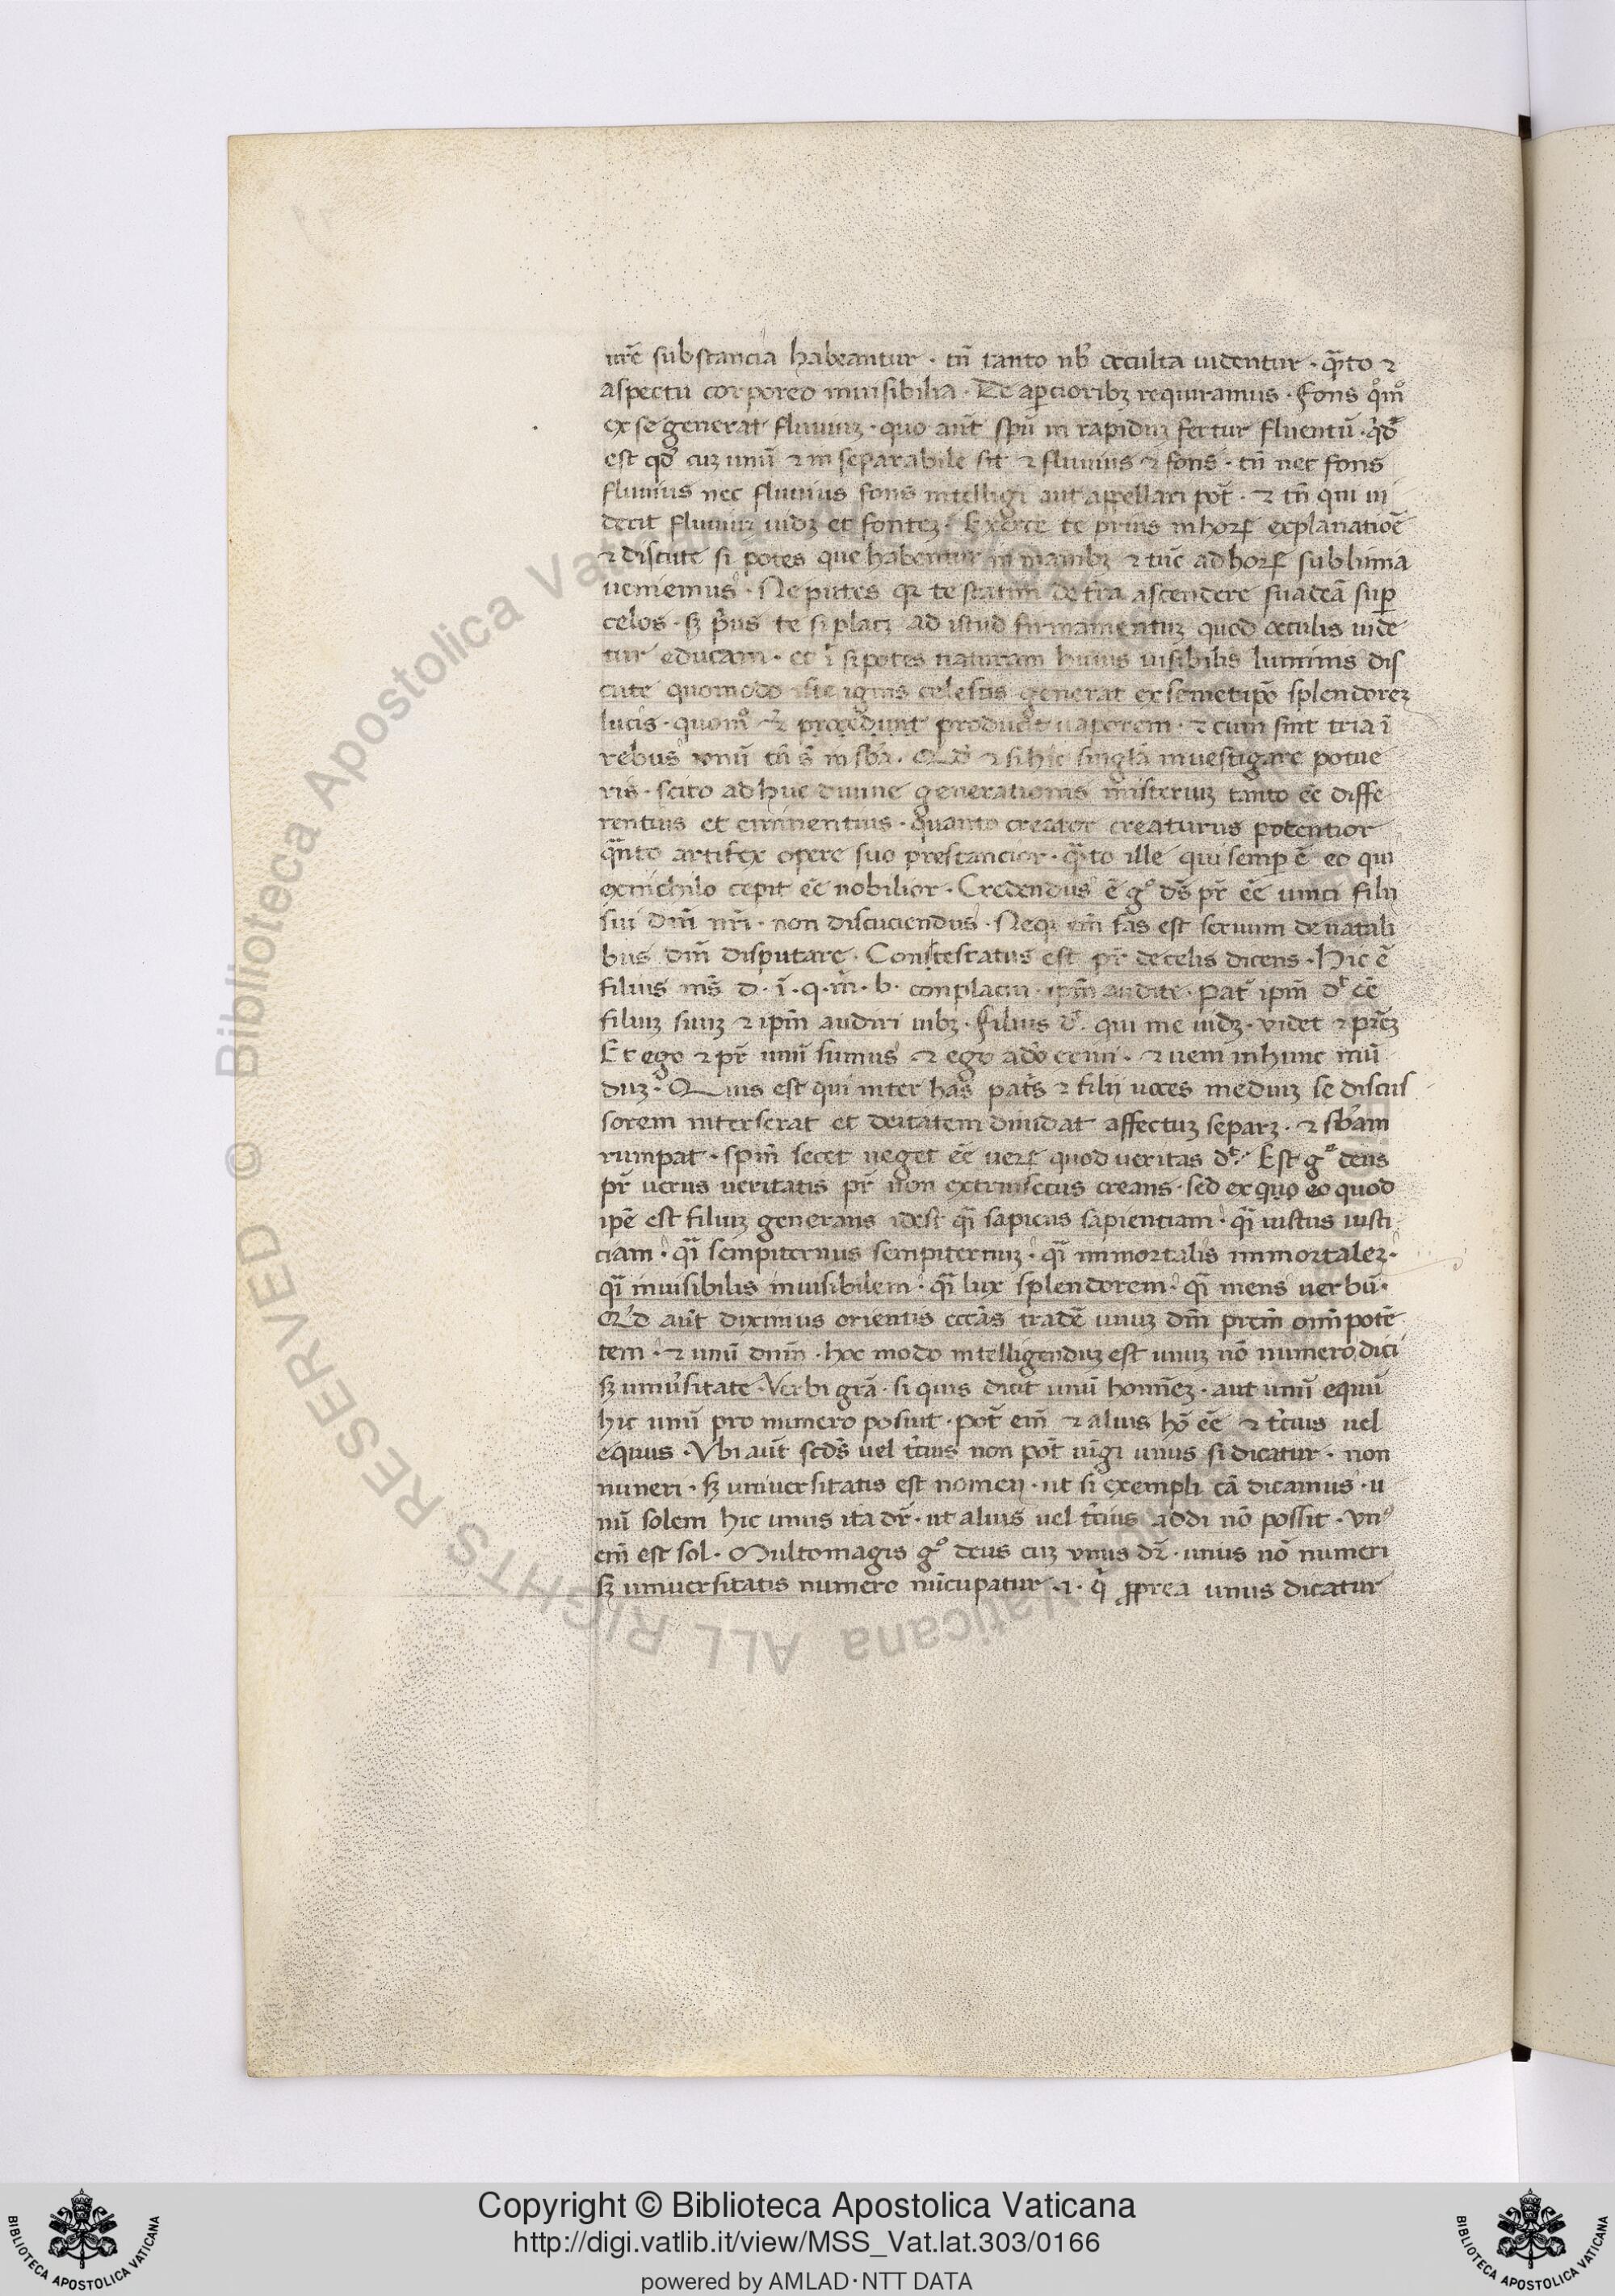 nr̄e substancia habeantur · tn̄ tanto nob̄ occulta uidentur · qͣto ⁊
aspectu corporeo inuisibilia · De apcioribꝫ requiramus · Fons qͦmͦ
ex se generat fluuiuꝫ · quo aūt spū in rapiduꝫ fertur fluentū · qd̓
est qd̓ cuꝫ unū ⁊ in separabile sit ⁊ fluuius ⁊ fons · tn̄ nec fons
fluuius nec fluuius fons intelligi aut appellari pot̄ · ⁊ tn̄ qui ui
derit fluuiuꝫ uidꝫ et fonteꝫ · Exerce te prius in hoꝝ explanatiōe
⁊ discute si potes que habentur in manibꝫ ⁊ tūc ad hoꝝ sublimia
ueniemus · Ne putes qꝛ te statim de tr̄a ascendere suadeā suꝑ
celos · sꝫ p̓us te si placꝫ ad istud firmamentuꝫ quod oculis uide
tur educam · et ī si potes naturam huius uisibilis luminis dis
cute quomodo iste ignis celestis generat ex semetip̄o splendoreꝫ
lucis · quomͦ ⁊ procedunt producit uaporem · ⁊ cum sint tria ī
rebus unū tn̄ s̄ in sb̄a · Qd̓ ⁊ si hic singl̄a inuestigare potue
ris · scito ad huc diuine generationis misteriuꝫ tanto ēe diffe
rentius et eminentius · quanto creator creaturus potentior
qͣnto artifex opere suo prestancior · qͣto ille qui semp ē eo qui
ex nichilo cepit ēe nobilior · Credendus ē gͦ ds̄ pr̄ ēe unici filii
sui dn̄i nr̄i · non discuciendus · Neqꝫ em̄ fas est seruum de natali
bus dn̄i disputare · Contestatus est pr̄ de celis dicens · Hic ē
filius ms̄ d · i · q · m · b · conplacui · ipm̄ audite · Pat̄ ipm̄ dt̄ ēe
filiuꝫ suuꝫ ⁊ ipm̄ audiri iubꝫ · Filius dt̄ · qui me uidꝫ · videt ⁊ pr̄eꝫ
Et ego ⁊ pr̄ unū sumus ⁊ ego a do exiui · ⁊ ueni in hunc mū
duꝫ · Quis est qui inter has patr̄s ⁊ filii uoces mediuꝫ se discus
sorem interserat et deitatem diuidat affectuꝫ separꝫ · ⁊ sb̄am
rumpat · spm̄ secet neget ēe ueꝝ quod ueritas dt̄ · Est gͦ deus
pr̄ uerus ueritatis pr̄ non extrinsecus creans · sed ex quo eo quod
ipē est filiuꝫ generans idest qͣ sapiens sapientiam · qͣ iustus iusti
ciam · qͣ sempiternus sempiternuꝫ · qͣ immortalis immortaleꝫ ·
qͣ inuisibilis inuisibilem · qͣ lux splendorem · qͣ mens uerbū ·
Qd̓ aūt diximus orientis eccās tradē unuꝫ dm̄ prem̄ om̄ipotē
tem · ⁊ unū dnm̄ · hoc modo intelligenduꝫ est unuꝫ nō numero dici
sꝫ uniu̓sitate · Verbi grā · si quis dicit unū homīeꝫ · aut unū equū
hic unū pro numero posuit · pot̄ em̄ ⁊ alius hō ēe ⁊ tc̓ius uel
equus · Vbi aūt scds̄ uel tc̓ius non pot̄ iūgi unus si dicatur · non
numeri · sꝫ uniuersitatis est nomen · ut si exempli cā dicamus · u
nū solem hic unus ita dr̄ · ut alius uel tc̓ius addi nō possit · vnꝰ
em̄ est sol · Multomagis gͦ deus cuꝫ vnus dr̄ · unus nō numeri
sꝫ uniuersitatis numero nūcupatur · i · q̓ ꝓprea unus dicatur
Copyright © Biblioteca Apostolica Vaticana
http://digi.vatlib.it/view/MSS_Vat.lat.303/0166
powered by AMLAD·NTT DATA